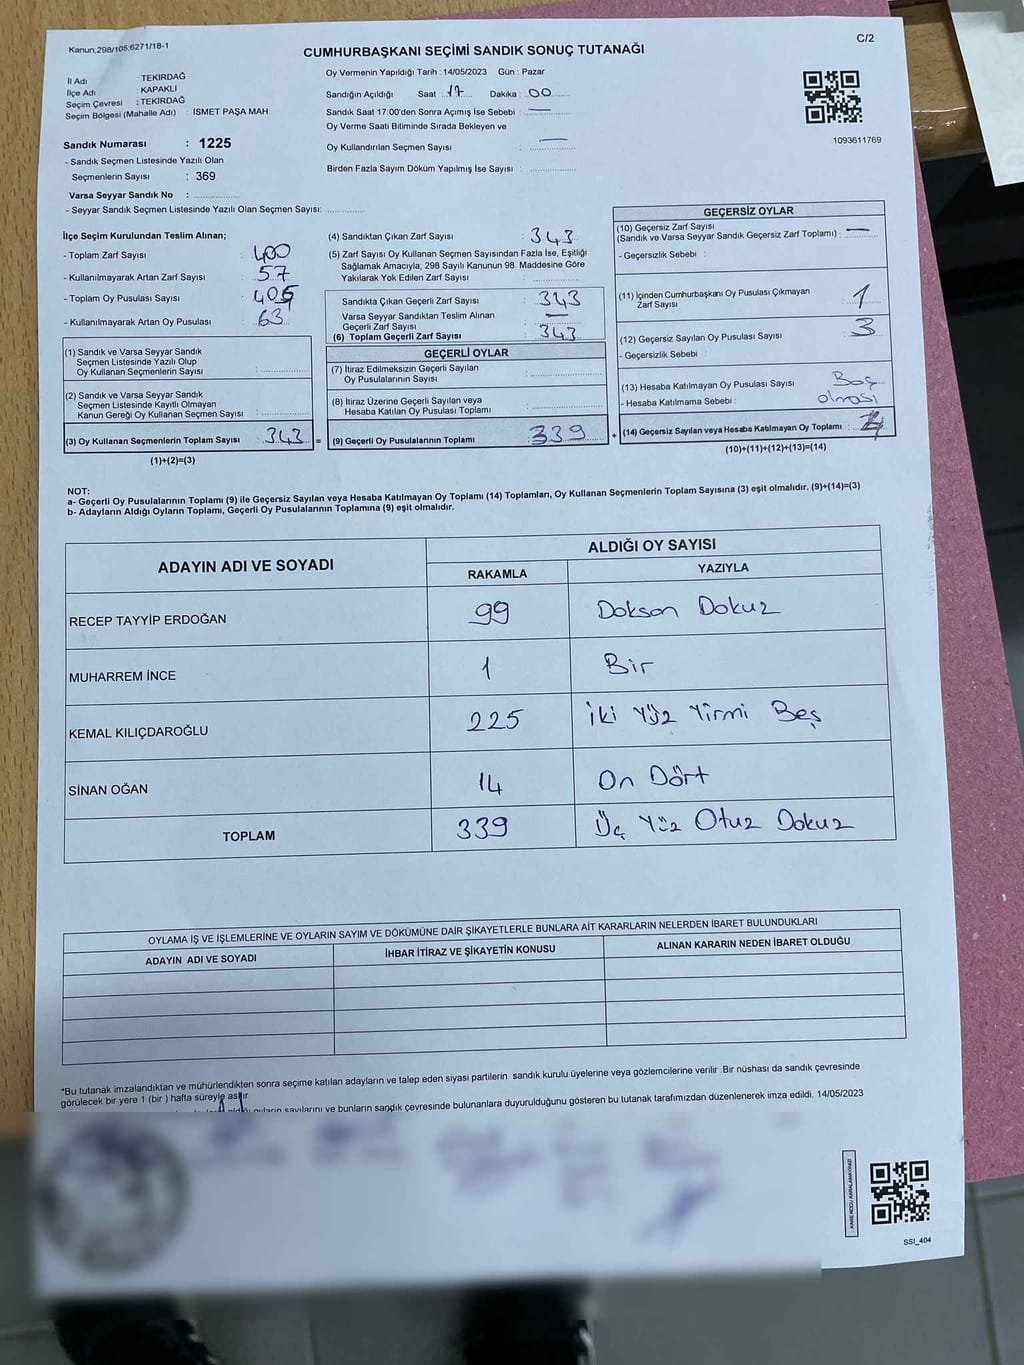 Kanun:298/105;6271/18-1
CUMHURBAŞKANI SEÇİMİ SANDIK SONUÇ TUTANAĞI
C/2
İl Adı : TEKİRDAĞ
İlçe Adı : KAPAKLI
Seçim Çevresi : TEKİRDAĞ
Seçim Bölgesi (Mahalle Adı) : İSMET PAŞA MAH.
Sandık Numarası : 1225
- Sandık Seçmen Listesinde Yazılı Olan
Seçmenlerin Sayısı : 369
Varsa Seyyar Sandık No :
- Seyyar Sandık Seçmen Listesinde Yazılı Olan Seçmen Sayısı:
Oy Vermenin Yapıldığı Tarih : 14/05/2023 Gün : Pazar
Sandığın Açıldığı Saat : 17 Dakika : 00
Sandık Saat 17:00'den Sonra Açımış İse Sebebi : —
Oy Verme Saati Bitiminde Sırada Bekleyen ve
Oy Kullandırılan Seçmen Sayısı : —
Birden Fazla Sayım Döküm Yapılmış İse Sayısı :
1093611769
İlçe Seçim Kurulundan Teslim Alınan;
- Toplam Zarf Sayısı : 400
- Kullanılmayarak Artan Zarf Sayısı : 57
- Toplam Oy Pusulası Sayısı :
- Kullanılmayarak Artan Oy Pusulası : 63
(1) Sandık ve Varsa Seyyar Sandık
Seçmen Listesinde Yazılı Olup
Oy Kullanan Seçmenlerin Sayısı :
(2) Sandık ve Varsa Seyyar Sandık
Seçmen Listesinde Kayıtlı Olmayan
Kanun Gereği Oy Kullanan Seçmen Sayısı :
(3) Oy Kullanan Seçmenlerin Toplam Sayısı : 343 =
(1)+(2)=(3)
(4) Sandıktan Çıkan Zarf Sayısı : 343
(5) Zarf Sayısı Oy Kullanan Seçmen Sayısından Fazla İse, Eşitliği
Sağlamak Amacıyla; 298 Sayılı Kanunun 98. Maddesine Göre
Yakılarak Yok Edilen Zarf Sayısı :
Sandıkta Çıkan Geçerli Zarf Sayısı : 343
Varsa Seyyar Sandıktan Teslim Alınan
Geçerli Zarf Sayısı : —
(6) Toplam Geçerli Zarf Sayısı : 343
GEÇERLİ OYLAR
(7) İtiraz Edilmeksizin Geçerli Sayılan
Oy Pusulalarının Sayısı :
(8) İtiraz Üzerine Geçerli Sayılan veya
Hesaba Katılan Oy Pusulası Toplamı :
(9) Geçerli Oy Pusulalarının Toplamı : 339 +
GEÇERSİZ OYLAR
(10) Geçersiz Zarf Sayısı
(Sandık ve Varsa Seyyar Sandık Geçersiz Zarf Toplamı) : —
- Geçersizlik Sebebi :
(11) İçinden Cumhurbaşkanı Oy Pusulası Çıkmayan
Zarf Sayısı : 1
(12) Geçersiz Sayılan Oy Pusulası Sayısı : 3
- Geçersizlik Sebebi :
(13) Hesaba Katılmayan Oy Pusulası Sayısı : Boş
- Hesaba Katılmama Sebebi : olması
(14) Geçersiz Sayılan veya Hesaba Katılmayan Oy Toplamı :
(10)+(11)+(12)+(13)=(14)
NOT:
a- Geçerli Oy Pusulalarının Toplamı (9) ile Geçersiz Sayılan veya Hesaba Katılmayan Oy Toplamı (14) Toplamları, Oy Kullanan Seçmenlerin Toplam Sayısına (3) eşit olmalıdır. (9)+(14)=(3)
b- Adayların Aldığı Oyların Toplamı, Geçerli Oy Pusulalarının Toplamına (9) eşit olmalıdır.
ADAYIN ADI VE SOYADI
ALDIĞI OY SAYISI
RAKAMLA YAZIYLA
RECEP TAYYİP ERDOĞAN 99 Doksan Dokuz
MUHARREM İNCE 1 Bir
KEMAL KILIÇDAROĞLU 225 İki Yüz Yirmi Beş
SİNAN OĞAN 14 On Dört
TOPLAM 339 Üç Yüz Otuz Dokuz
OYLAMA İŞ VE İŞLEMLERİNE VE OYLARIN SAYIM VE DÖKÜMÜNE DAİR ŞİKAYETLERLE BUNLARA AİT KARARLARIN NELERDEN İBARET BULUNDUKLARI
ADAYIN ADI VE SOYADI İHBAR İTİRAZ VE ŞİKAYETİN KONUSU ALINAN KARARIN NEDEN İBARET OLDUĞU
*Bu tutanak imzalandıktan ve mühürlendikten sonra seçime katılan adayların ve talep eden siyasi partilerin sandık kurulu üyelerine veya gözlemcilerine verilir .Bir nüshası da sandık çevresinde
görülecek bir yere 1 (bir ) hafta süreyle asılır
oyların sayılarını ve bunların sandık çevresinde bulunanlara duyurulduğunu gösteren bu tutanak tarafımızdan düzenlenerek imza edildi. 14/05/2023
KARE KODU KARALAMAYINIZ!
SSI_404